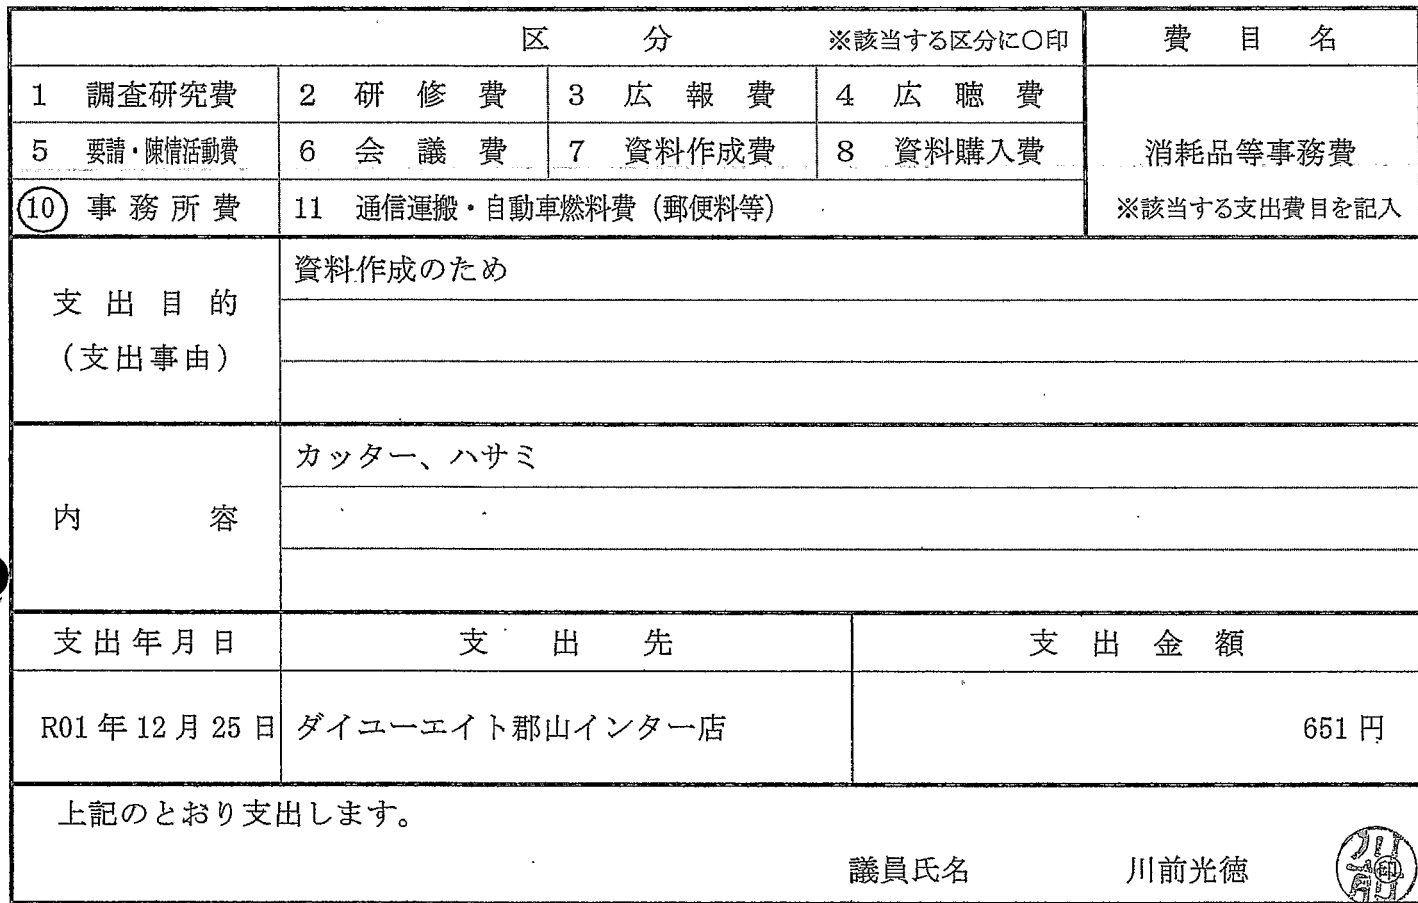 区 分 ※該当する区分に〇印 費 目 名
1 調査研究費 2 研 修 費 3 広 報 費 4 広 聴 費
5 要請・陳情活動費 6 会 議 費 7 資料作成費 8 資料購入費 消耗品等事務費
10 事 務 所 費 11 通信運搬・自動車燃料費（郵便料等） ※該当する支出費目を記入
支 出 目 的
（支出事由）
資料作成のため
内 容
カッター、ハサミ
支 出 年 月 日 支 出 先 支 出 金 額
R01 年 12 月 25 日 ダイユーエイト郡山インター店 651 円
上記のとおり支出します。
議員氏名 川前光徳 印
川前